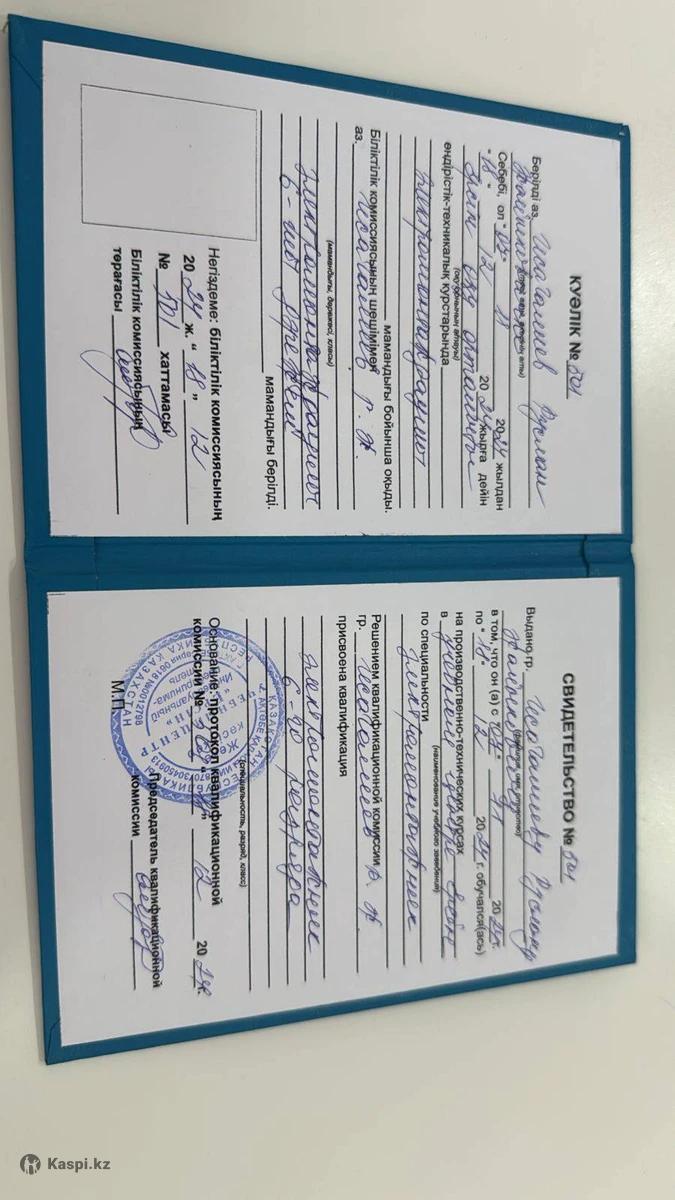 КУӘЛІК № 501
Берілді аз. Исагалиев Руслан
(тегі, аты, әкесінің аты)
Себебі, ол "09" 2024 жылдан
"18" 12 2024 жылға дейін
оқу орталығы
(оқу орнының атауы)
өндірістік-техникалық курстарында
электромонтаждаушы
мамандығы бойынша оқыды.
Біліктілік комиссиясының шешімімен
аз. Исагалиев Р. Ж.
(мамандығы, дәрежесі, класы)
Электромонтаждаушы
6-шы дәрежелі
мамандығы берілді.
Негіздеме: біліктілік комиссиясының
2024 ж. "18" 12
№ 501 хаттамасы
Біліктілік комиссиясының
төрағасы
СВИДЕТЕЛЬСТВО № 501
Выдано гр. Исагалиеву Руслану
(фамилия, имя, отчество)
в том, что он (а) с "09" 2024 г.
по "18" 12 2024 г. обучался(ась)
на производственно-технических курсах
в учебном центре
(наименование учебного заведения)
по специальности
электромонтажник
Решением квалификационной комиссии
гр. Исагалиев Р. Ж.
присвоена квалификация
электромонтажник
6-го разряда
(специальность, разряд, класс)
Основание: протокол квалификационной
комиссии № 501 "18" 12 2024 г.
Председатель квалификационной
М.П. комиссии
Kaspi.kz